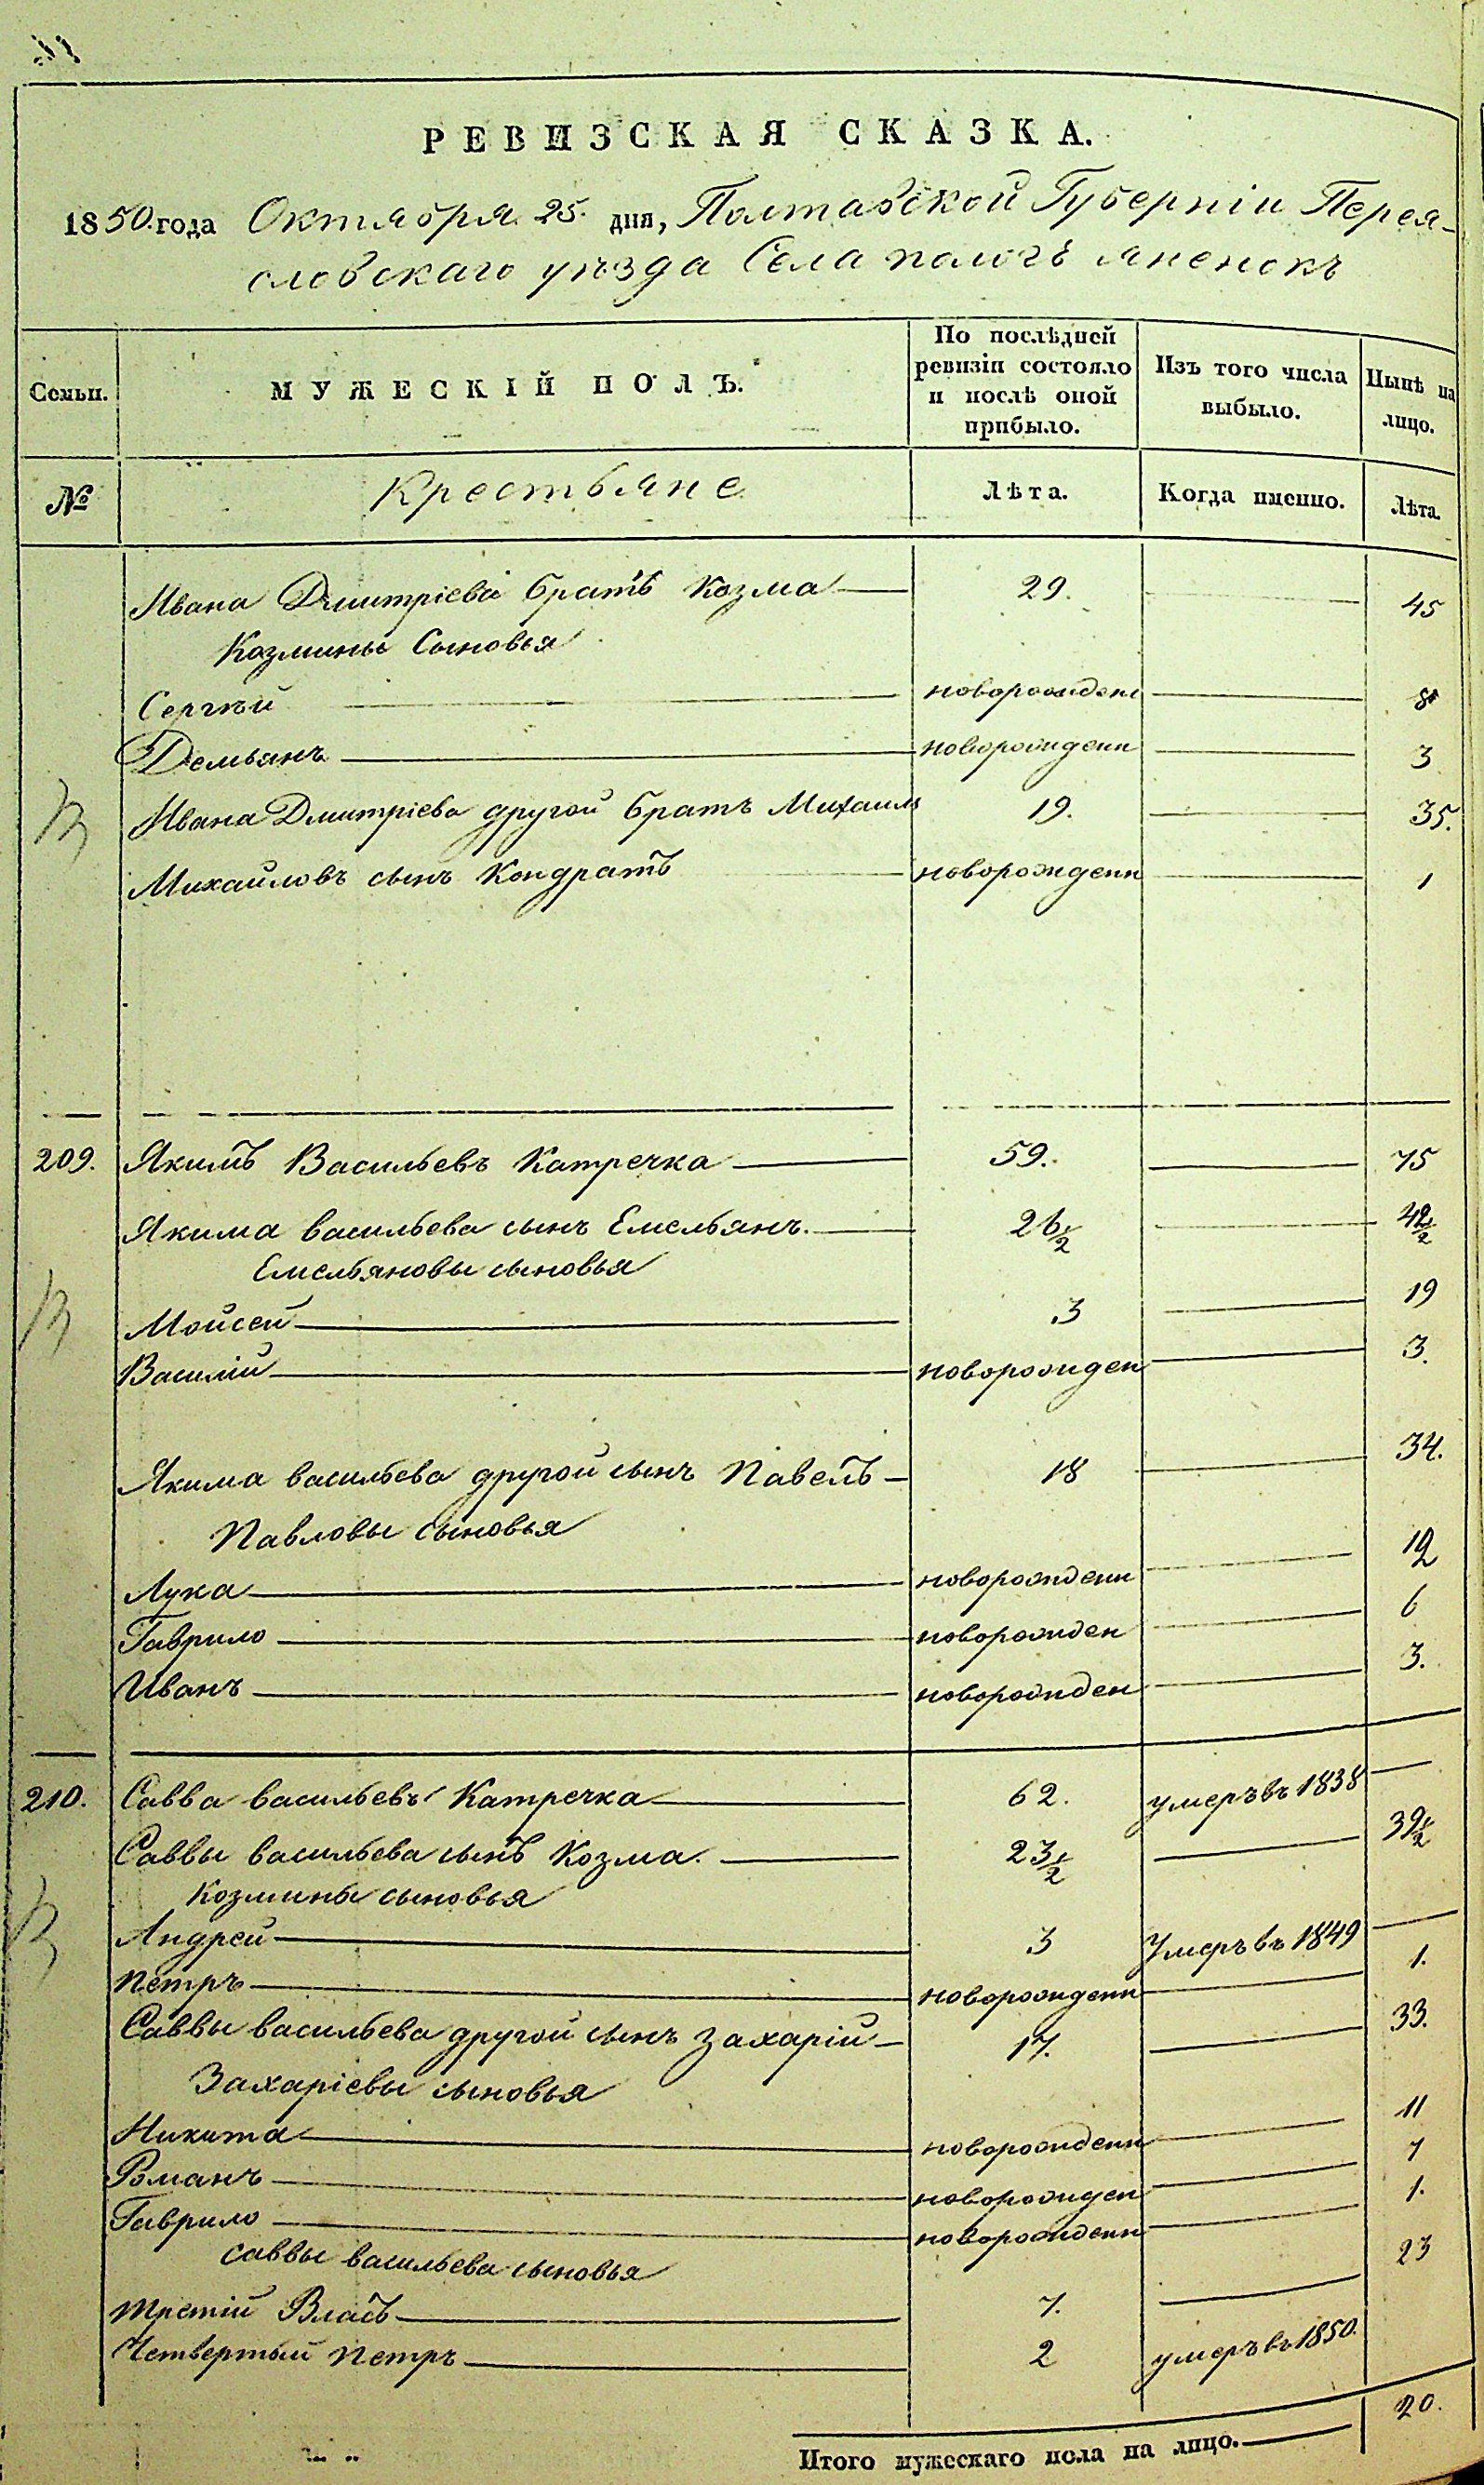 РЕВИЗСКАЯ СКАЗКА.
1850 года Октября 25. дня, Полтавской Губерніи Перея-
словскаго уѣзда Села
Семьи. МУЖЕСКІЙ ПОЛЪ. По послѣдней ревизіи состояло и послѣ оной прибыло. Изъ того числа выбыло. Нынѣ на лицо.
№ Крестьяне Лѣта. Когда именно. Лѣта.
Ивана Дмитріева братъ Козма 29. 45
Козмины Сыновья
Сергѣй новорожден 8
Демьянъ новорожденн 3
Ивана Дмитріева другой братъ Михаилъ 19. 35.
Михайловъ сынъ Кондратъ новорожденн 1
209. Якимъ Васильевъ Катречка 59. 75
Якима васильева сынъ Емельянъ. 26 1/2 42 1/2
Емельяновы сыновья
Мойсей 3 19
Василій новорожден 3.
Якима васильева другой сынъ Павелъ 18 34.
Павловы сыновья
Лука новорожденн 12
Гаврило новорожден 6
Иванъ новорожден 3.
210. Савва васильевъ Катречка 62. умеръ въ 1838
Саввы васильева сынъ Козма. 23 1/2 39 1/2
Козмины сыновья
Андрей 3 Умеръ въ 1849
Петръ новорожденн 1.
Саввы васильева другой сынъ Захарій 17. 33.
Захаріевы сыновья
Никита новорожденн 11
Романъ новорожден 7
Гаврило новорожденн 1.
Саввы васильева сыновья
третій Власъ 7. 23
Четвертый Петръ 2 умеръ въ 1850.
Итого мужескаго пола на лицо. 20.